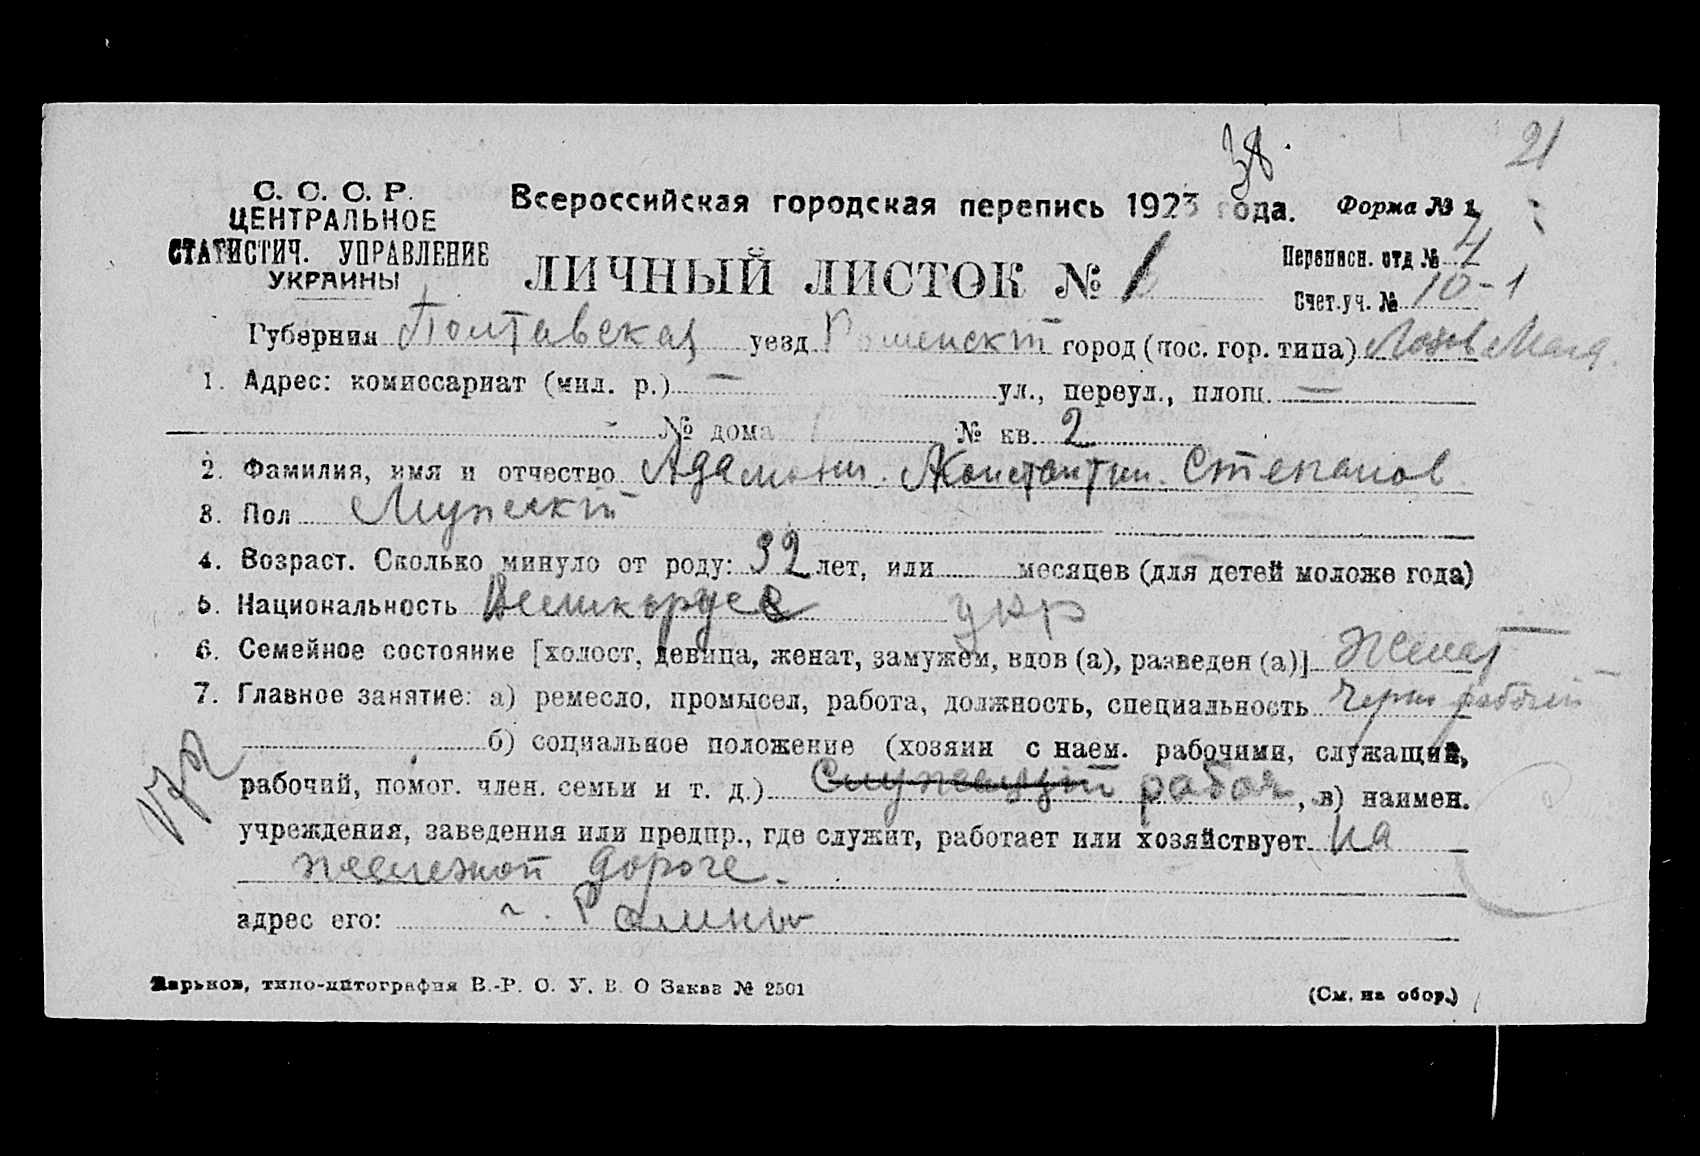 38.
21
С. С. С. Р.
ЦЕНТРАЛЬНОЕ
СТАТИСТИЧ. УПРАВЛЕНИЕ
УКРАИНЫ
Всероссийская городская перепись 1923 года.
Форма № 1
ЛИЧНЫЙ ЛИСТОК № 1
Переписн. отд № 4
Счет. уч. № 10-1
Губерния Полтавская уезд Роменскій город (пос. гор. типа)
1. Адрес: комиссариат (мил. р.) — ул., переул., площ. —
№ дома № кв. 2
2. Фамилия, имя и отчество Константин. Степанов
3. Пол Мужскій
4. Возраст. Сколько минуло от роду: 32 лет, или месяцев (для детей моложе года)
5. Национальность Великорусс укр
6. Семейное состояние [холост, девица, женат, замужем, вдов (а), разведен (а)] Женат
7. Главное занятие: а) ремесло, промысел, работа, должность, специальность Черно рабочій
б) социальное положение (хозяин с наем. рабочими, служащий,
рабочий, помог. член. семьи и т. д.) Служащій рабоч , в) наимен.
учреждения, заведения или предпр., где служит, работает или хозяйствует на
железной дороге.
адрес его: г. Ромны
Харьков, типо-литография В.-Р. О. У. В. О Заказ № 2501
(См. на обор.)